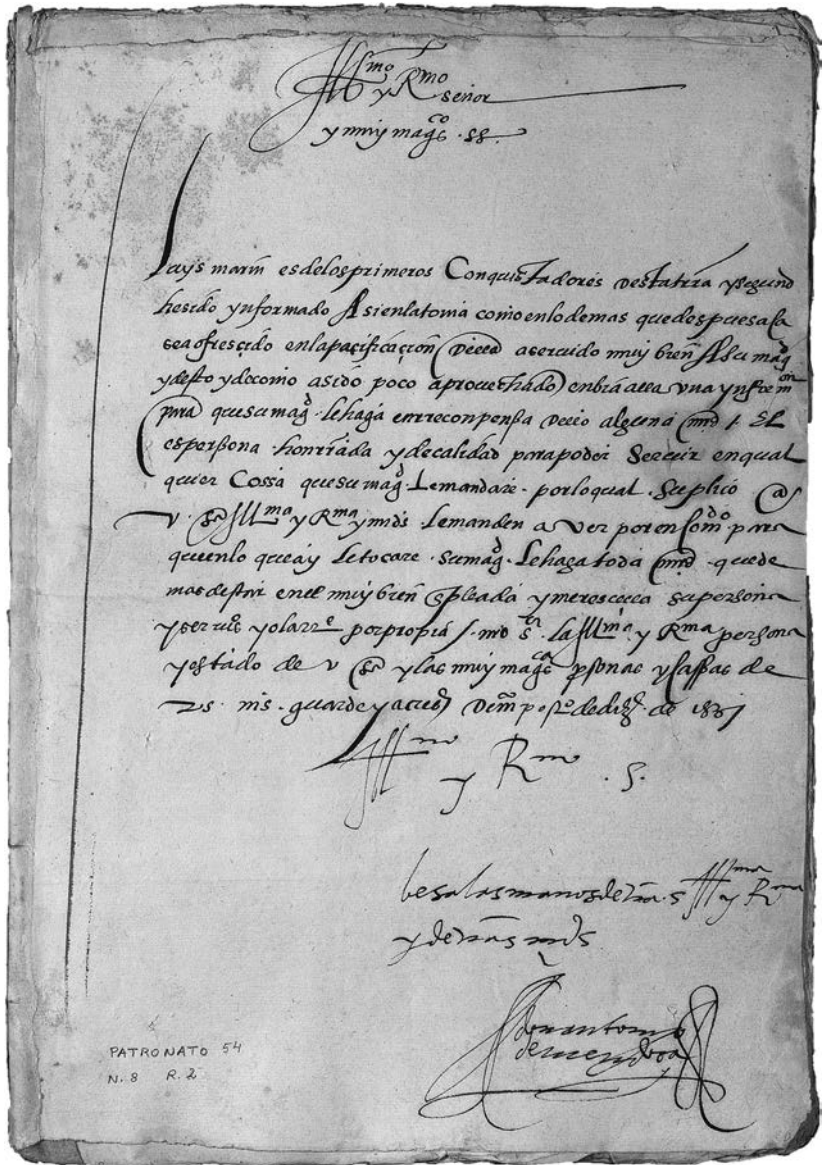 Illmo y Rmo
señor
y muy magco . ss.
luys marin es delos primeros Conquistadores desta trra y segund
he sido ynformado Asi en la toma como en lo demas que despues aca
sea ofrescido en la pacificacion della a seruido muy bien A su magd
y desto y de como a sido poco aprouechado enbia alla vna ynfformon
para que su magd. le haga en rreconpensa dello alguna md / El
es persona honrrada y de calidad para poder Seruir en qual
quier Cossa que su magd. le mandare. por lo qual. suplico a
v. sa Illma y Rma y mds. le manden a ver por encomdo para
que en lo que ay le tocare. su magd. le haga toda md. que de
mas destar en el muy bien enpleada y merescella su persona
y seruios yo la rre por propia / nro sr. la Illma y Rma persona
y estado de v sa y las muy magcas psonas y cassas de
vs. ms. guarde y de mco po. de de
Illmo y Rmo . S.
besa las manos de vra. s Illma y Rma
y de vras mds
don antonio
de mendoça
PATRONATO 54
N. 8 R. 2